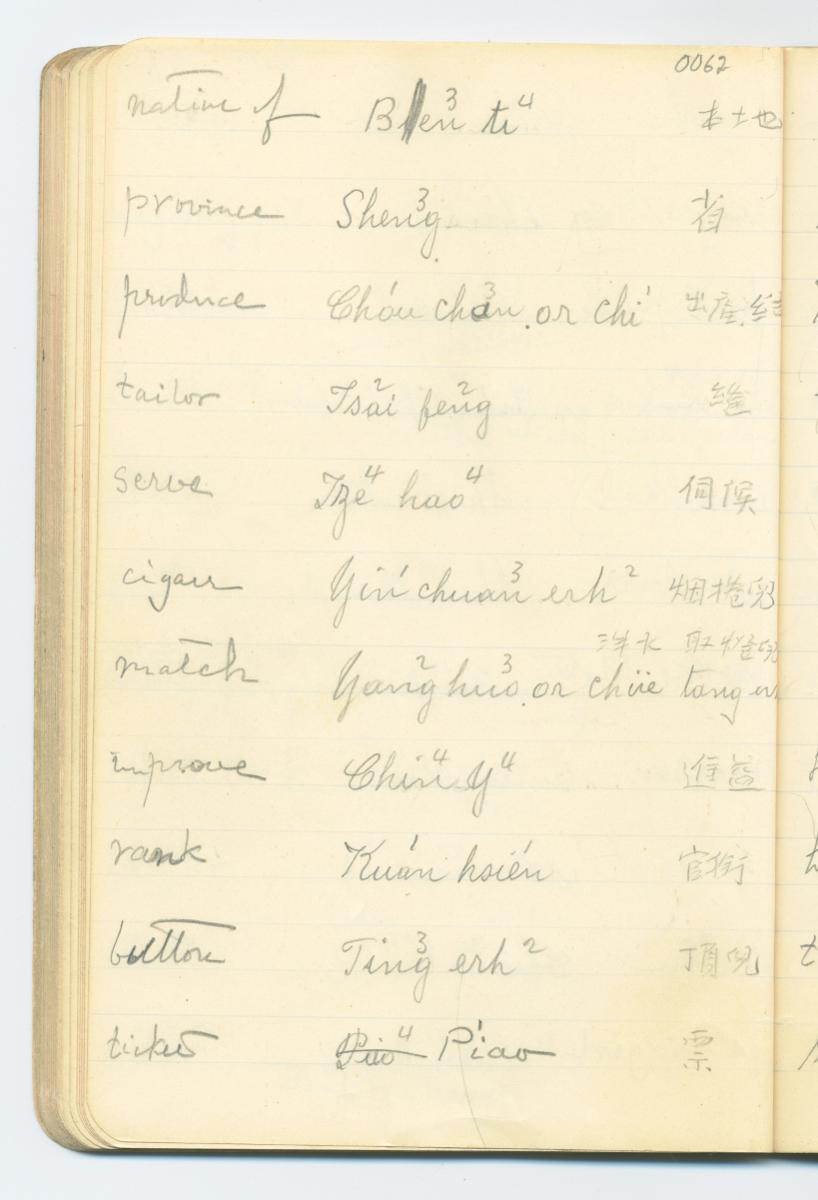 0062
native of Ben³ ti⁴ 本土地
province Sheng³ 省
produce Chóu chan³ or chi' 出産, 結
tailor Tsai² feng² 縫
serve Tze⁴ hao⁴ 伺候
cigarr Yin' chuan³ erh² 烟捲兒
洋火 取燈兒
match Yang² huo³ or chüe tang erh
improve Chin⁴ Y⁴ 進益
rank Kuán hsién 官銜
button Ting³ erh² 頂兒
ticket Piao⁴ P'iao 票